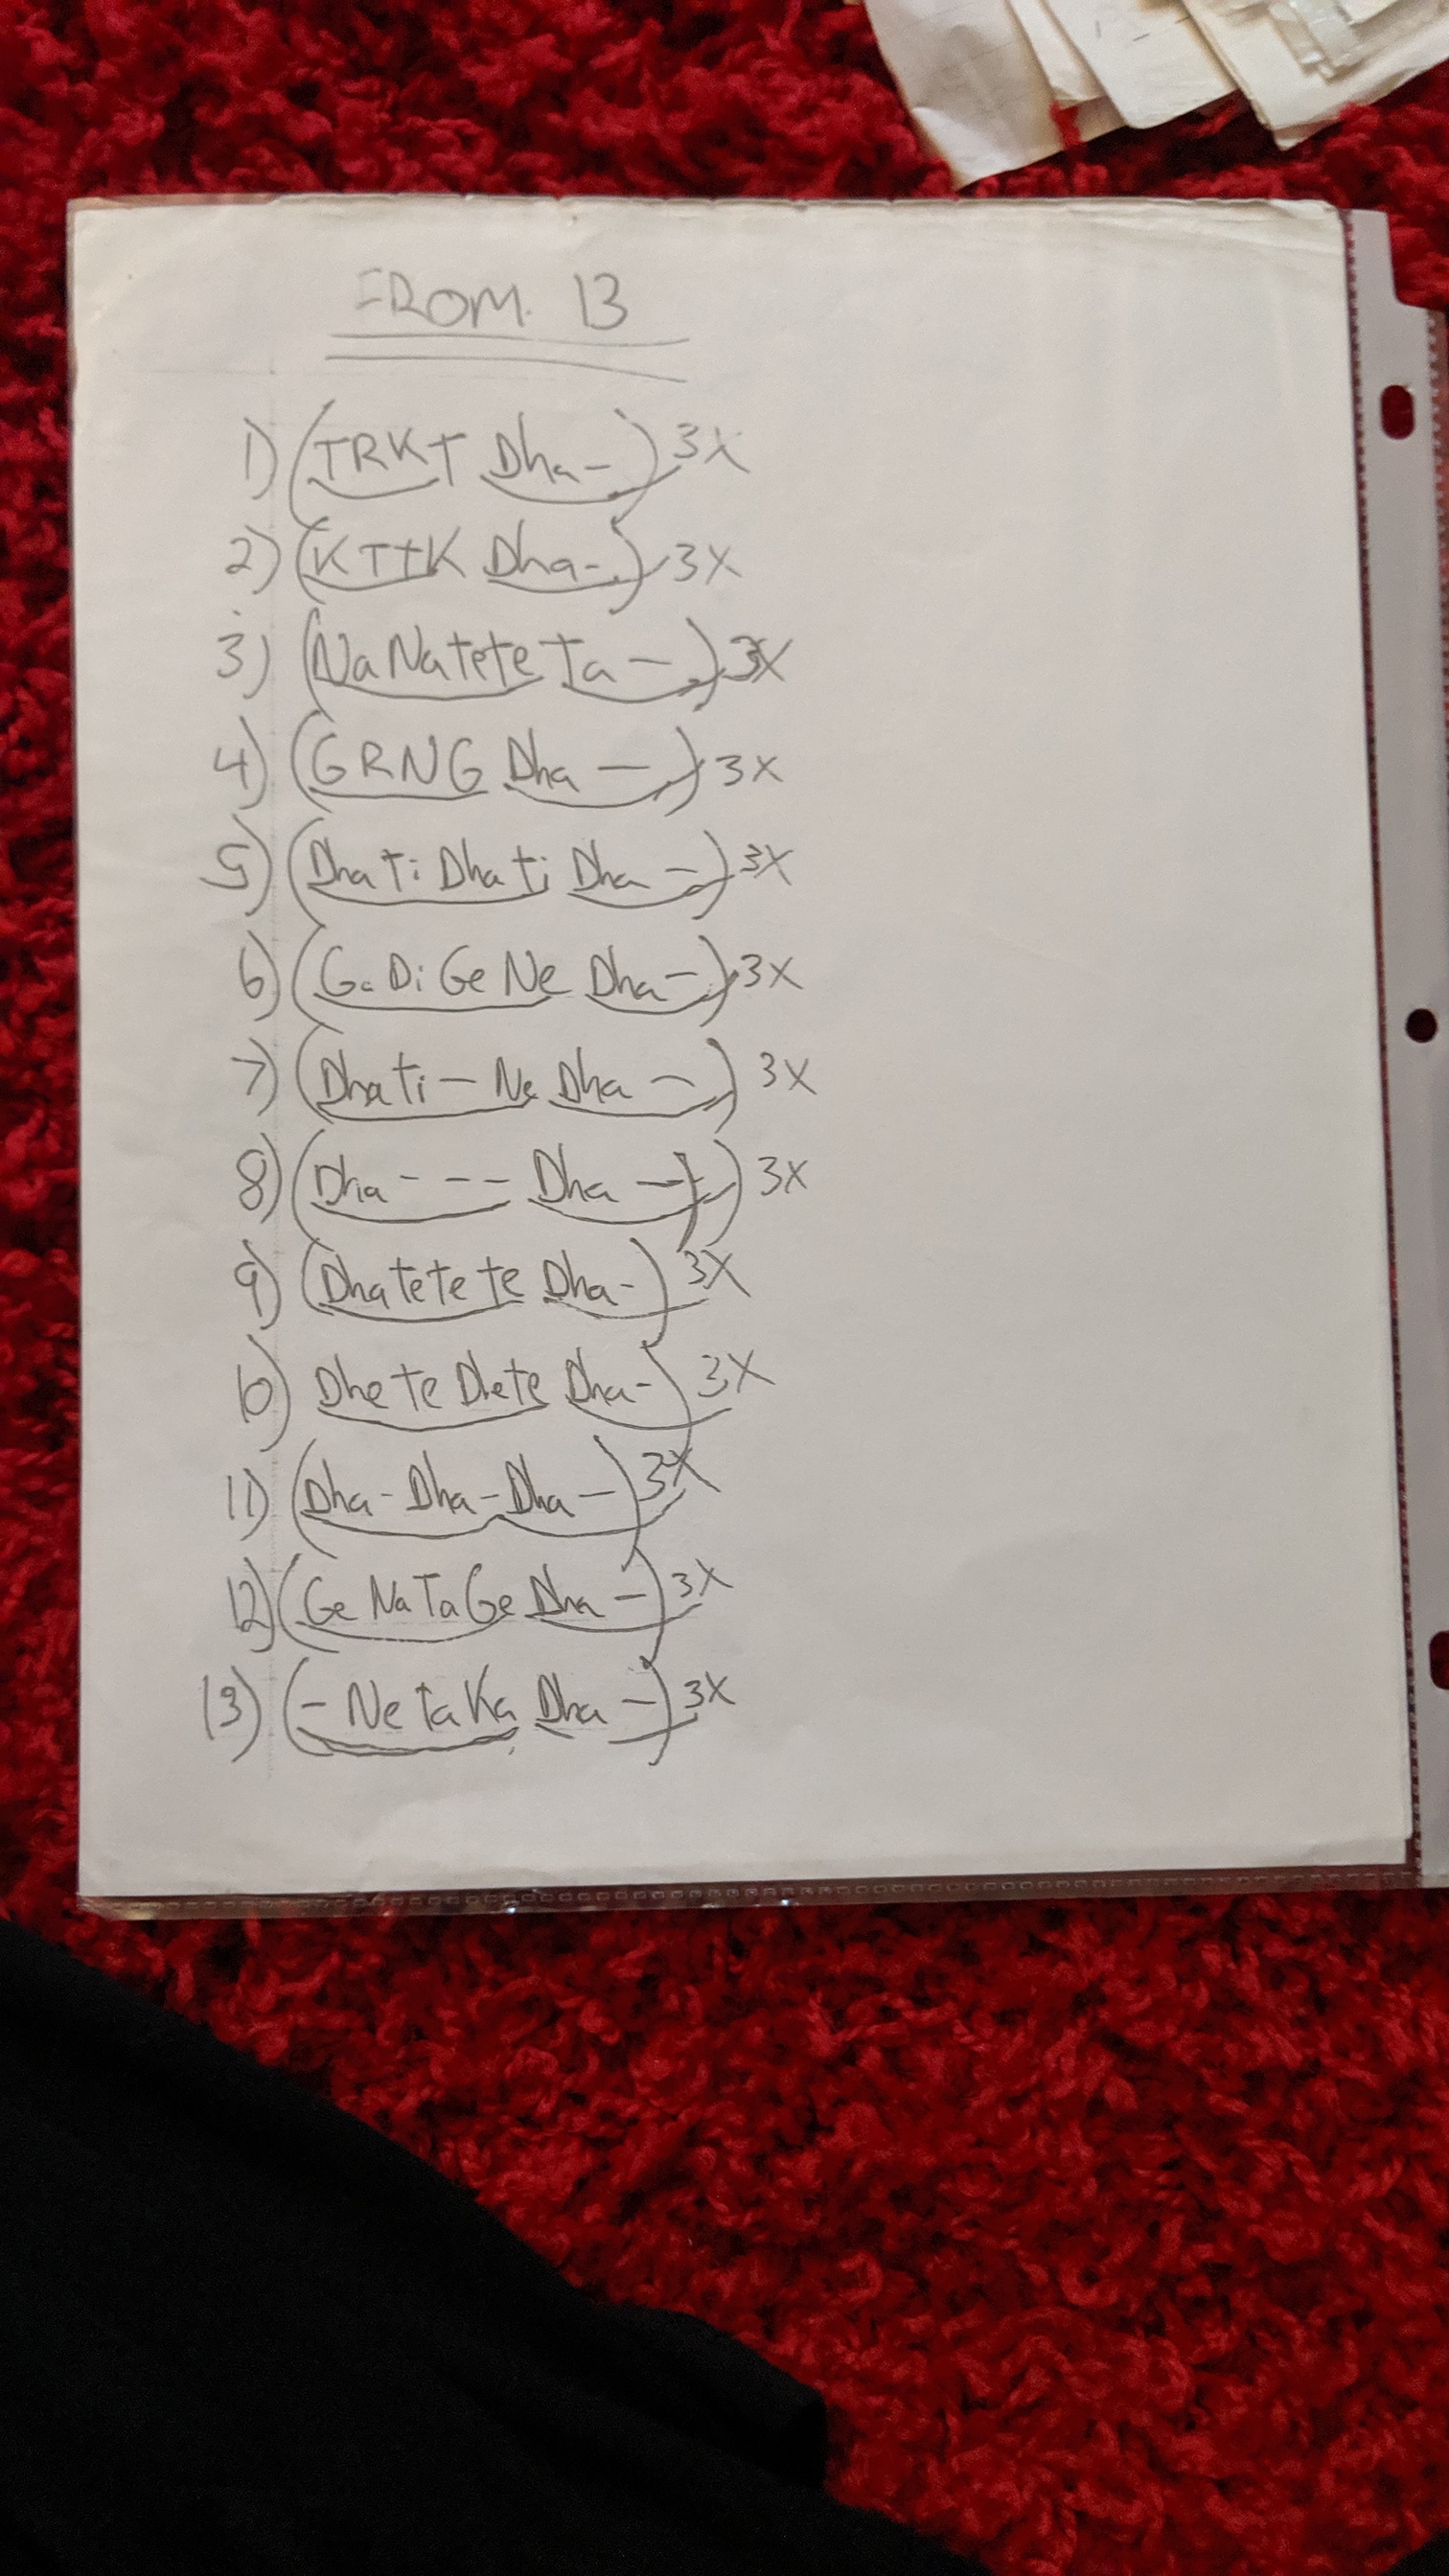 FROM 13
1) (TRKT Dha -) 3X
2) (KTTK Dha -) 3X
3) (NaNatete Ta -) 3X
4) (GRNG Dha -) 3X
5) (Dhati Dhati Dha -) 3X
6) (GaDiGeNe Dha -) 3X
7) (Dhati - Ne Dha -) 3X
8) (Dha - - - Dha -) 3X
9) (Dhatetete Dha -) 3X
10) Dhete Dhete Dha -) 3X
11) (Dha - Dha - Dha -) 3X
12) (GeNaTaGe Dha -) 3X
13) (- NetaKa Dha -) 3X